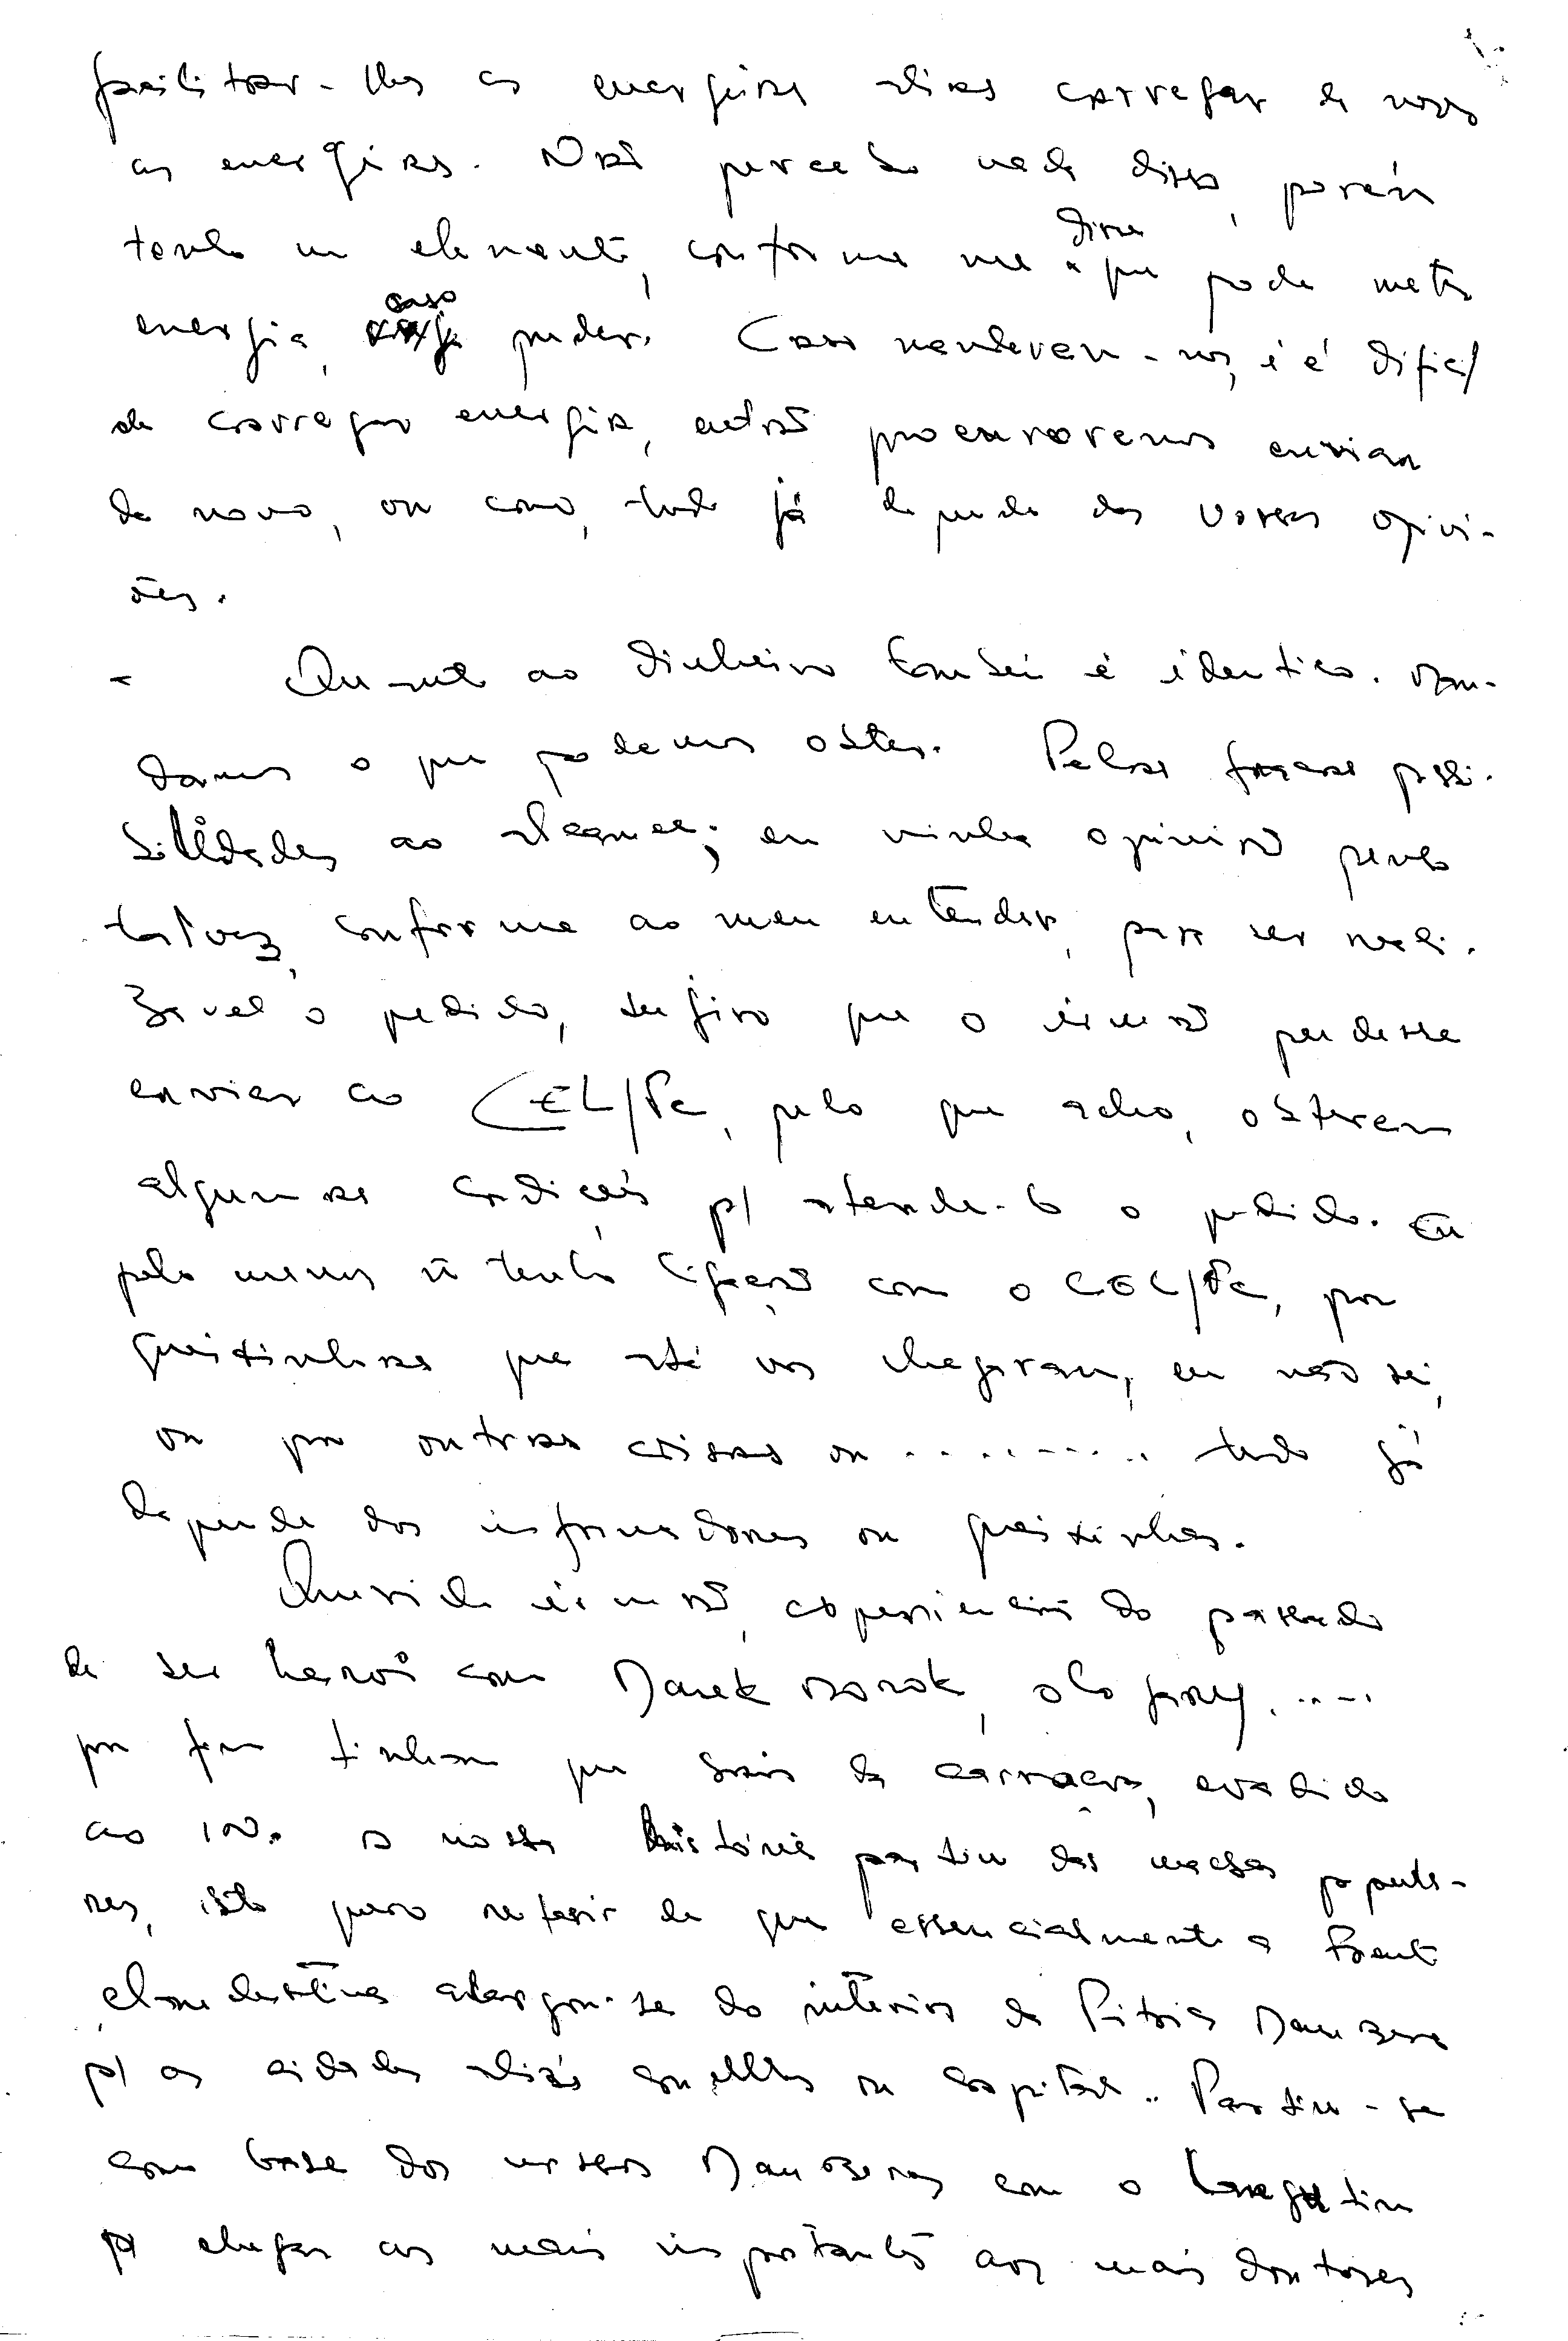 facilitar-lhes as energias aliás carregar de novo
as energias. Não percebo nada disso, porém
tenho um elemento, conforme me disse que pode meter
energia, caso puder. Caso mandarem-nos, é difícil
de carregar energia, então procuraremos enviar
de novo, ou como, tudo já depende das vossas opini-
ões.
- Quanto ao dinheiro também é identico. Man-
damos o que podemos obter. Pelas fracas possi-
bilidades ao alcance; em minha opinião penso
talvez, conforme ao meu entender, para ser reali-
zavel o pedido, sugiro que o irmão pudesse
enviar ao CEL/FC, pelo que acho, obterem
algumas condições p/ atende-lo o pedido. Eu
pelo menos ñ tenho ligação com o CEL/FC, por
queixinhas que até vos chegaram, eu não sei,
ou por outras coisas ou ......... tudo já
depende dos informadores ou queixinhas.
Querido irmão, experiencias do passado
de ser herois com Marek
por fim tinham que sair da carroça, evadido
ao IN. A nossa história partiu das massas popula-
res, isto quero referir de que essencialmente a Frente
clandestina alargou-se do interior da Pátria Maubere
p/ as cidades aliás concelhos ou capital.. Partiu-se
com base dos nossos Mauberes com o
p/ chegar aos mais importantes aos mais doutores